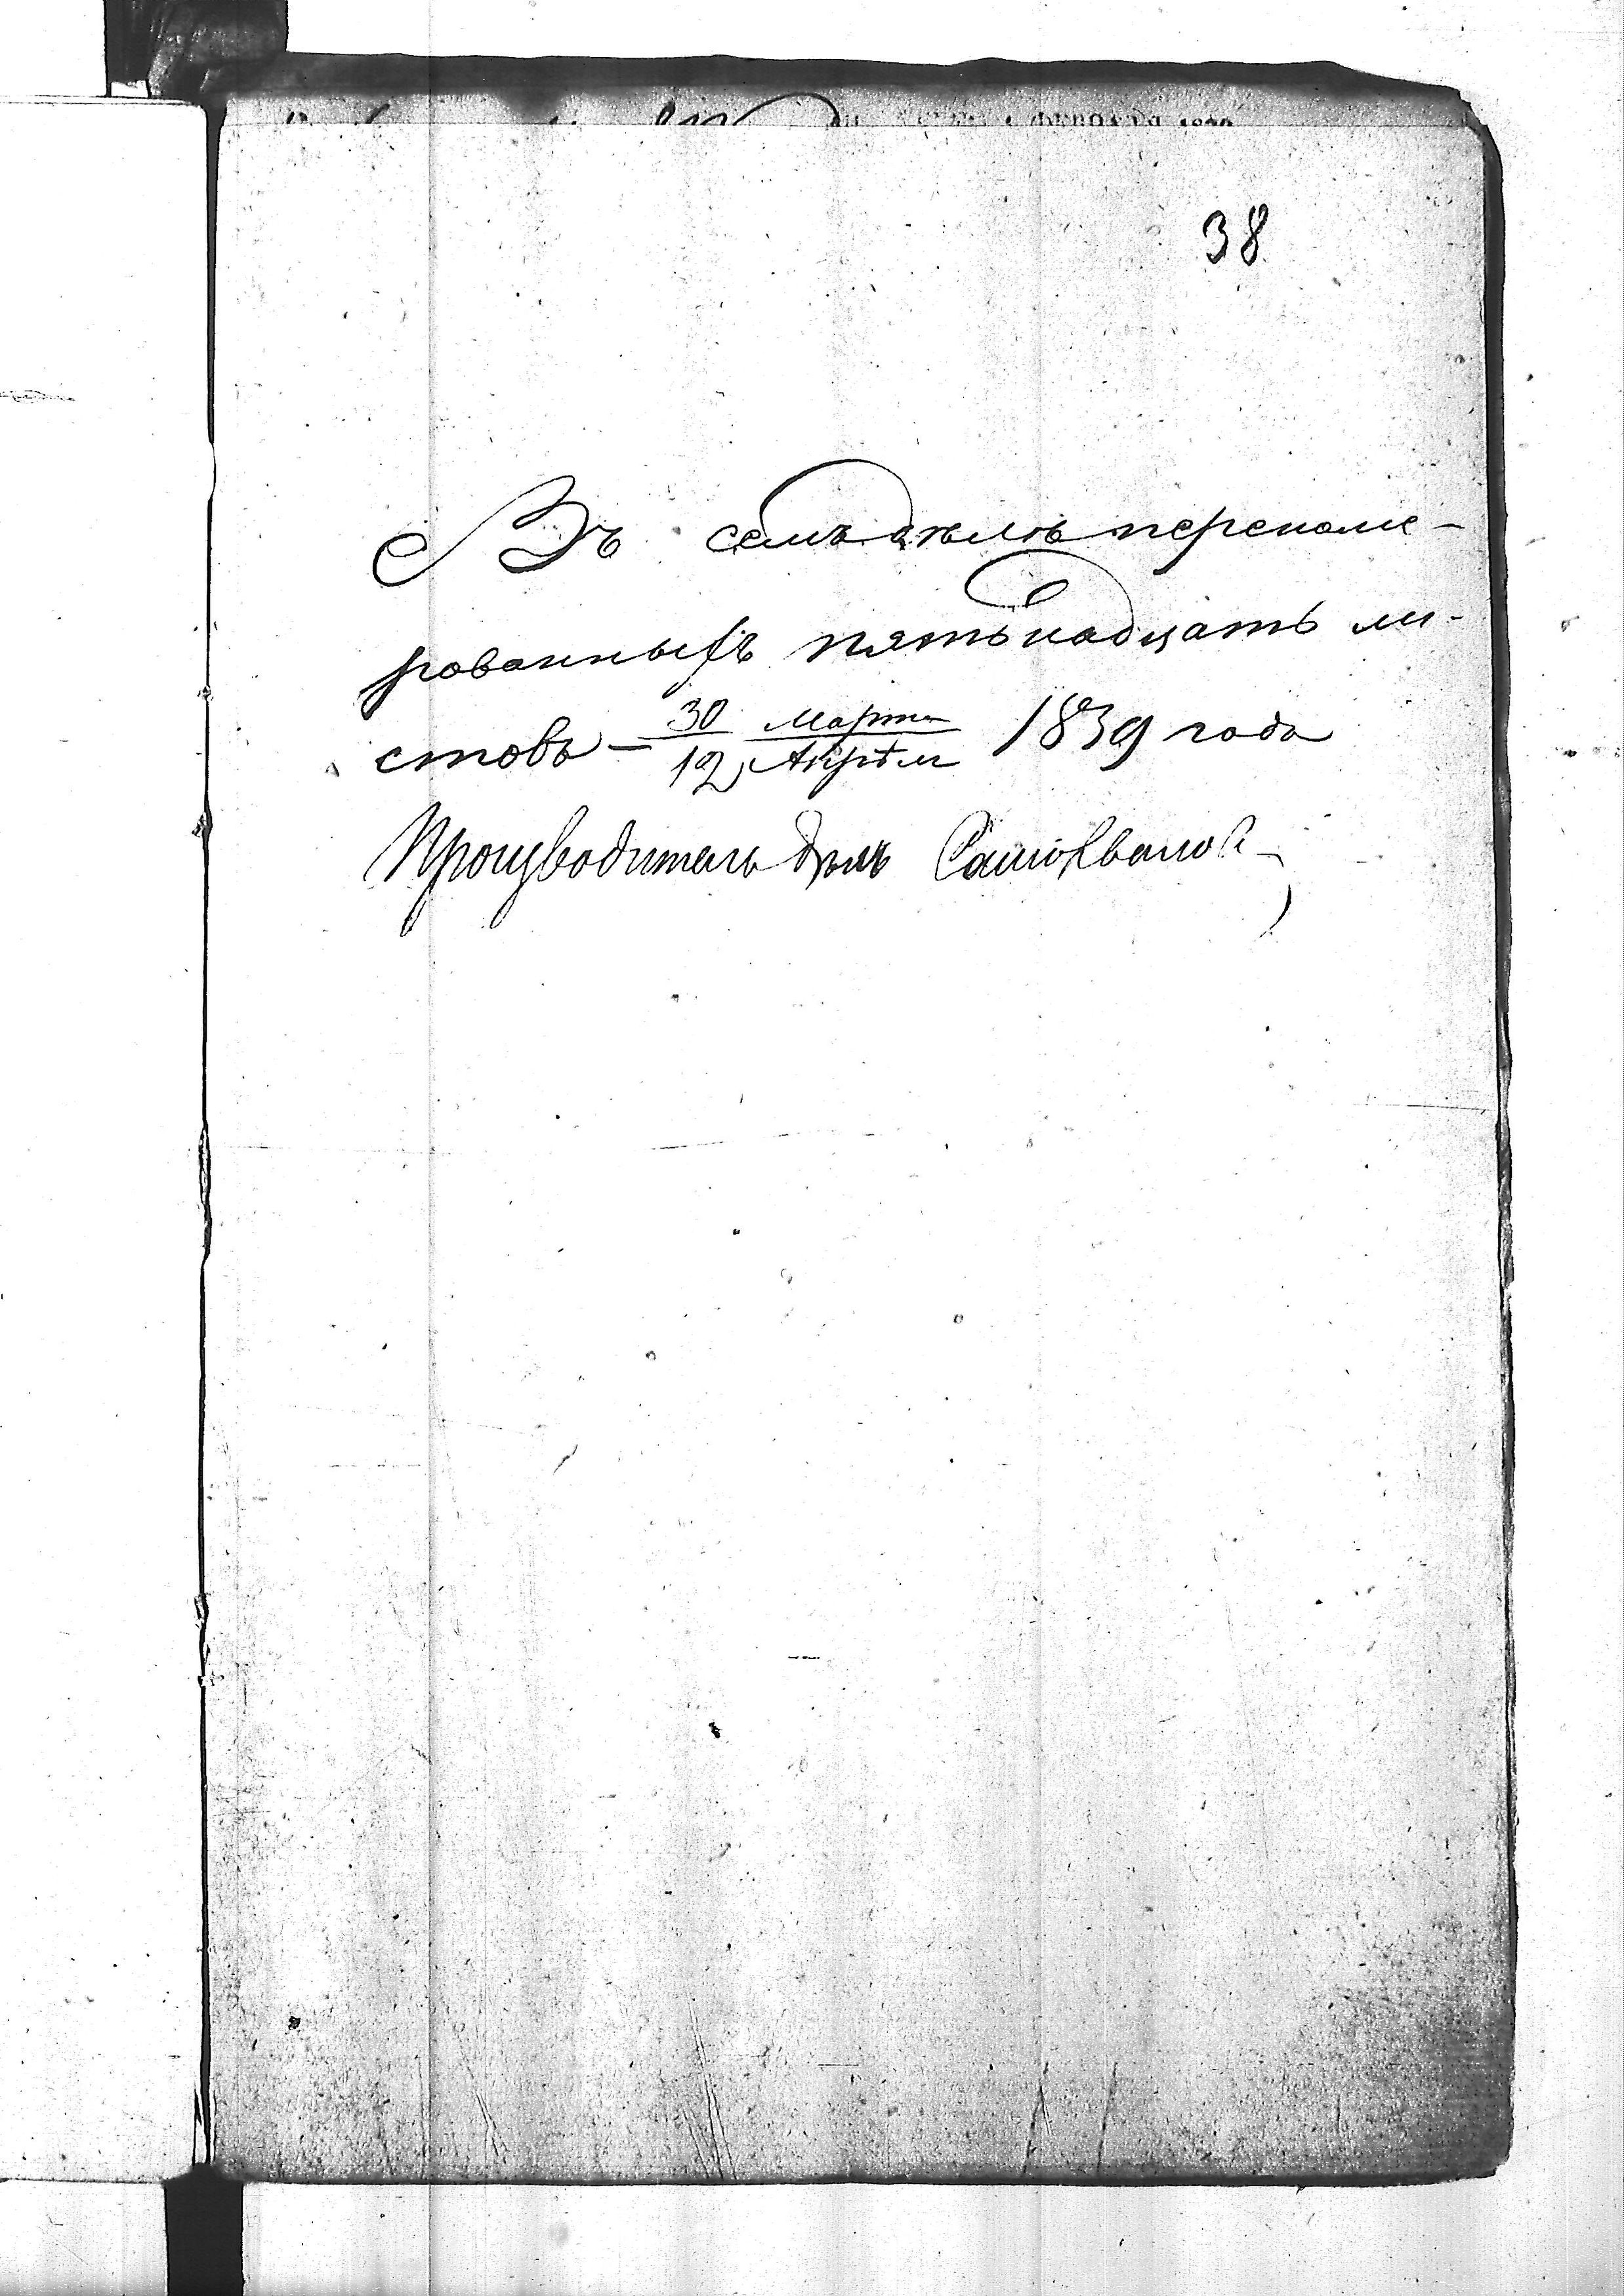 ФЕВРАЛЯ
38
Въ семъ дѣлѣ переноме-
рованныхъ пятьнадцать ли-
стовъ – 30/12 Марта/Апрѣля 1839 года
Производитель дѣлъ